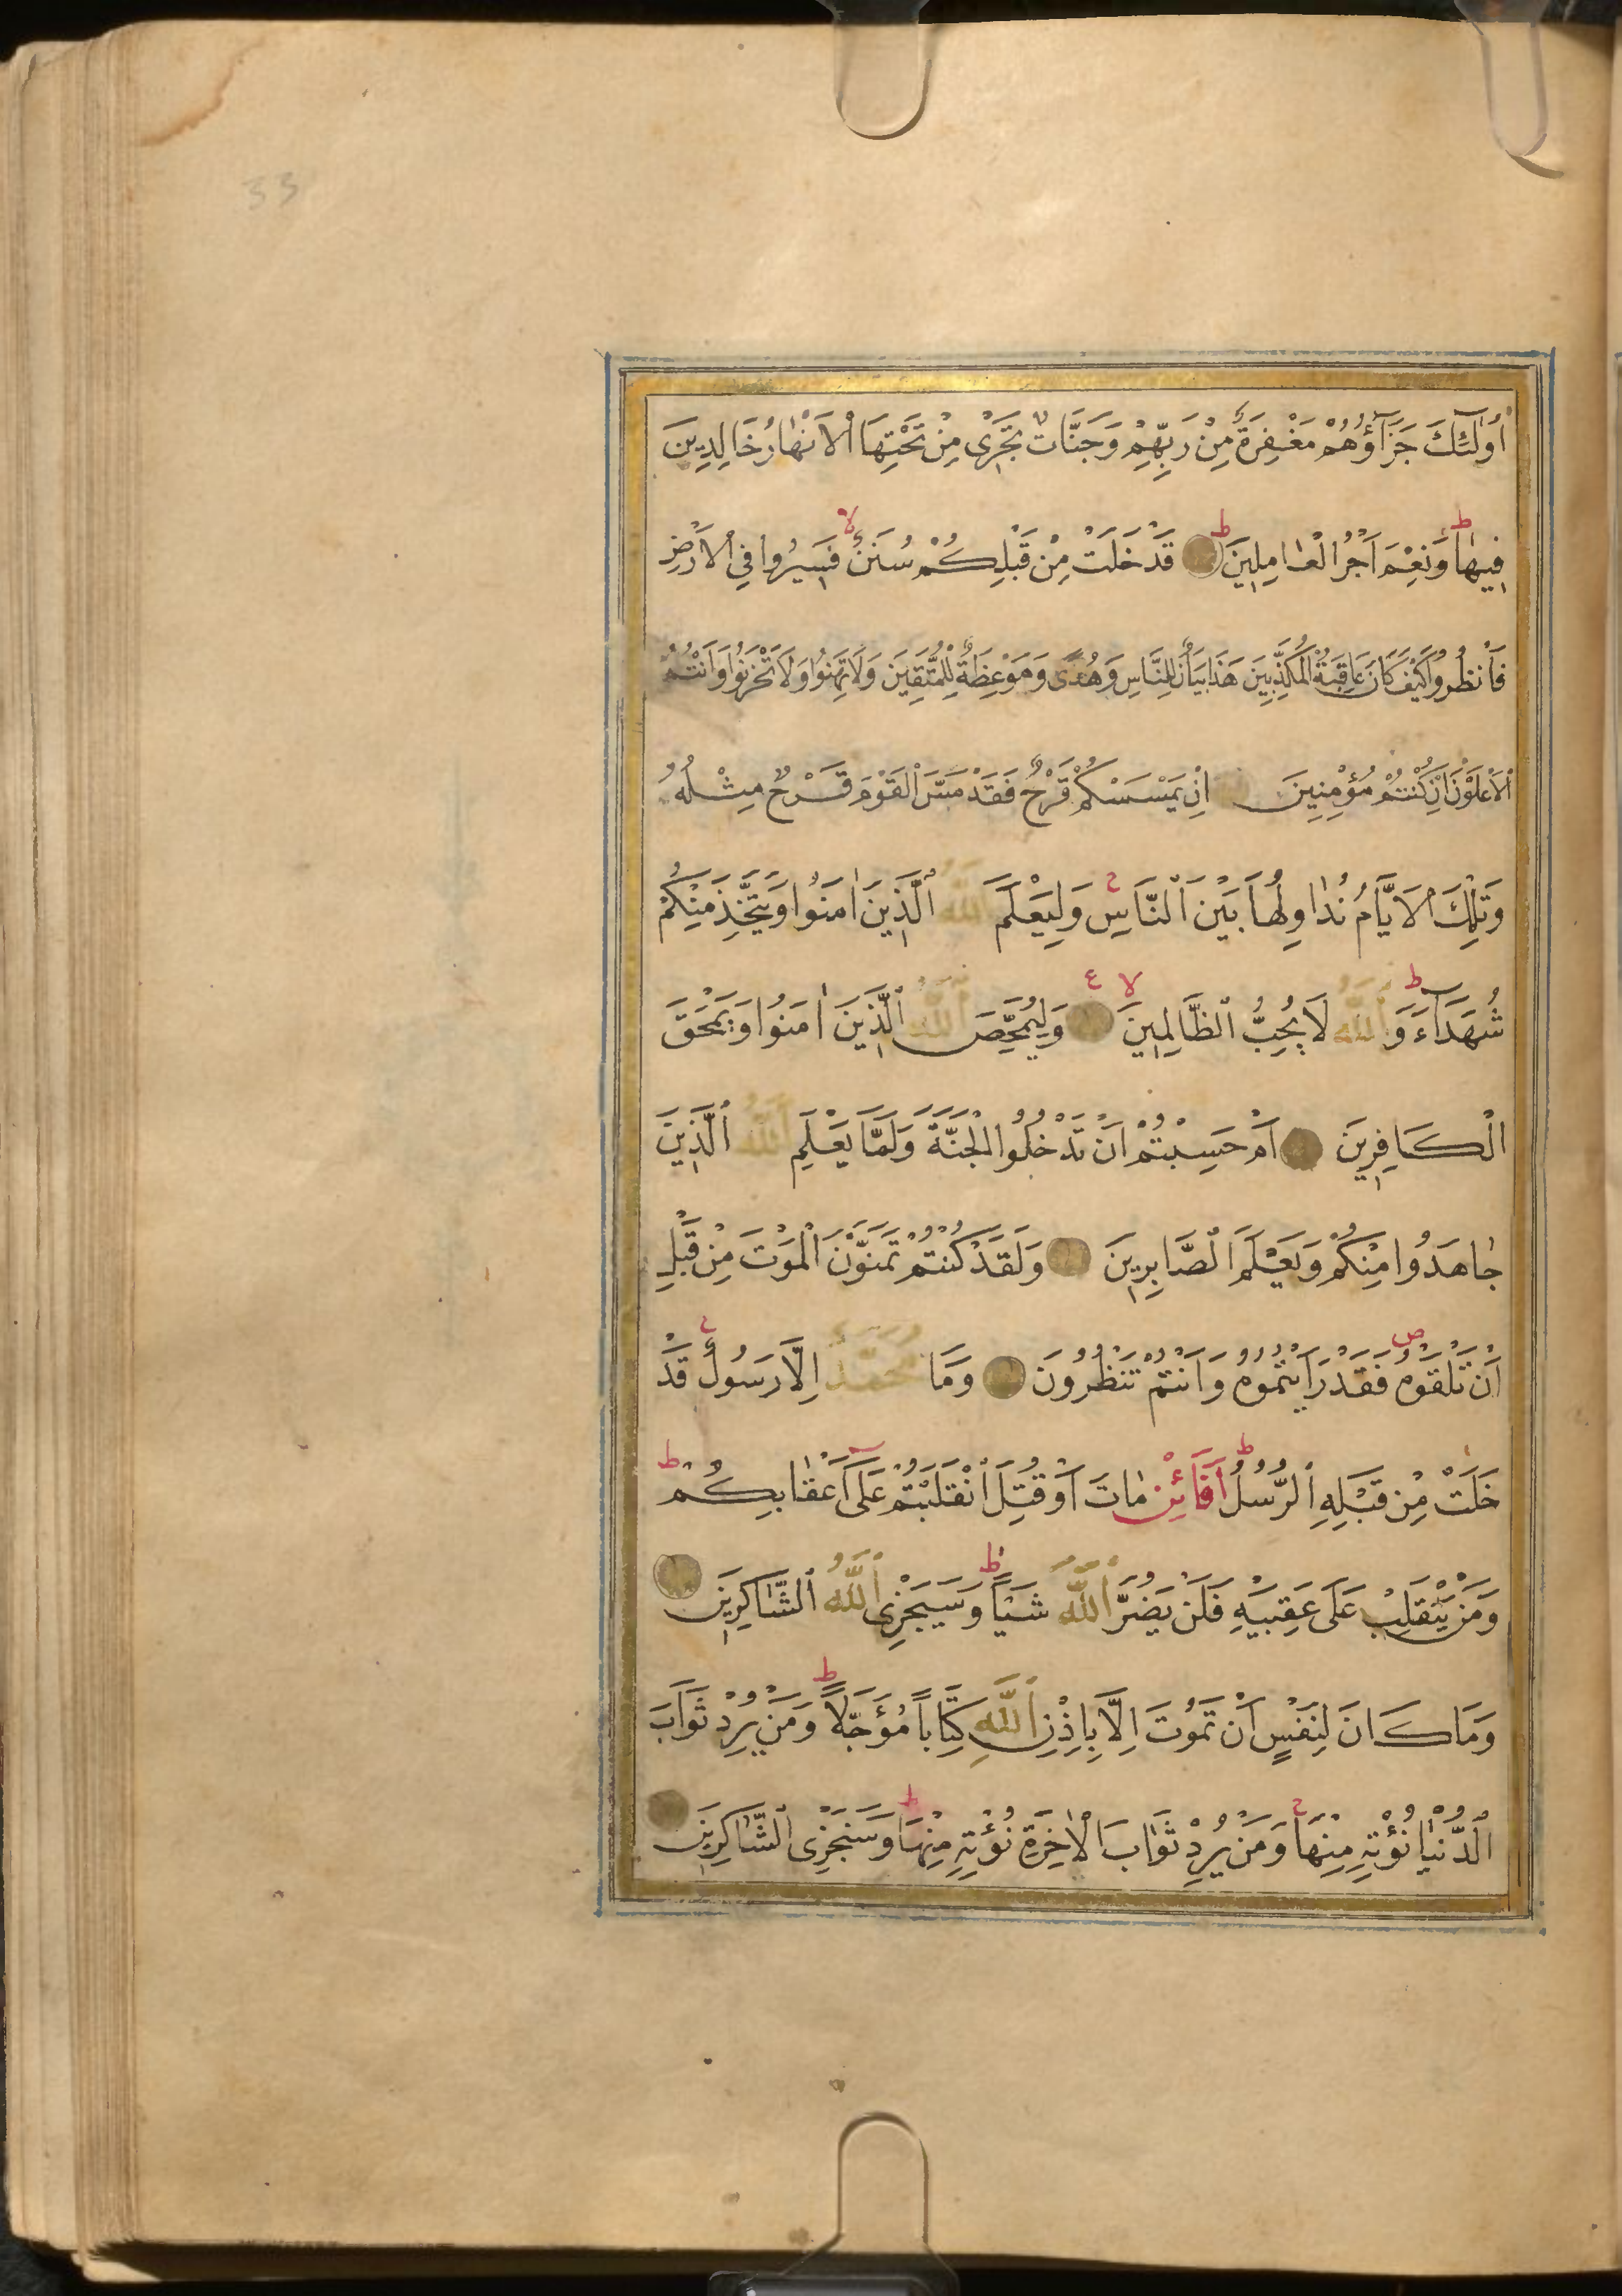 33
أُولٰٓئِكَ جَزَآؤُهُمْ مَغْفِرَةٌ مِنْ رَبِّهِمْ وَجَنَّاتٌ تَجْرٖى مِنْ تَحْتِهَا الْاَنْهَارُ خَالِدِينَ
ط ط لا
فِيهَا وَنِعْمَ اَجْرُ الْعَامِلِينَ قَدْ خَلَتْ مِنْ قَبْلِكُمْ سُنَنٌ فَسِيرُوا فِي الْاَرْضِ
فَانْظُرُوا كَيْفَ كَانَ عَاقِبَةُ الْمُكَذِّبِينَ هَذَا بَيَانٌ لِلنَّاسِ وَهُدًى وَمَوْعِظَةٌ لِلْمُتَّقِينَ وَلَا تَهِنُوا وَلَا تَحْزَنُوا وَاَنْتُمُ
الْاَعْلَوْنَ اِنْ كُنْتُمْ مُؤْمِنِينَ اِنْ يَمْسَسْكُمْ قَرْحٌ فَقَدْ مَسَّ الْقَوْمَ قَرْحٌ مِثْلُهُ
ح
وَتِلْكَ الْاَيَّامُ نُدَاوِلُهَا بَيْنَ النَّاسِ وَلِيَعْلَمَ اللّٰهُ الَّذِينَ اٰمَنُوا وَيَتَّخِذَ مِنْكُمْ
ط لا ع
شُهَدَآءَ وَاللّٰهُ لَا يُحِبُّ الظَّالِمِينَ وَلِيُمَحِّصَ اللّٰهُ الَّذِينَ اٰمَنُوا وَيَمْحَقَ
الْكَافِرِينَ اَمْ حَسِبْتُمْ اَنْ تَدْخُلُوا الْجَنَّةَ وَلَمَّا يَعْلَمِ اللّٰهُ الَّذِينَ
جَاهَدُوا مِنْكُمْ وَيَعْلَمَ الصَّابِرِينَ وَلَقَدْ كُنْتُمْ تَمَنَّوْنَ الْمَوْتَ مِنْ قَبْلِ
ص ج
اَنْ تَلْقَوْهُ فَقَدْ رَاَيْتُمُوهُ وَاَنْتُمْ تَنْظُرُونَ وَمَا مُحَمَّدٌ اِلَّا رَسُولٌ قَدْ
ط ط
خَلَتْ مِنْ قَبْلِهِ الرُّسُلُ اَفَائِنْ مَاتَ اَوْ قُتِلَ انْقَلَبْتُمْ عَلَى اَعْقَابِكُمْ
ط
وَمَنْ يَنْقَلِبْ عَلَى عَقِبَيْهِ فَلَنْ يَضُرَّ اللّٰهَ شَيْاً وَسَيَجْزِى اللّٰهُ الشَّاكِرِينَ
ط
وَمَا كَانَ لِنَفْسٍ اَنْ تَمُوتَ اِلَّا بِاِذْنِ اللّٰهِ كِتَاباً مُؤَجَّلاً وَمَنْ يُرِدْ ثَوَابَ
ج ط
الدُّنْيَا نُؤْتِهِ مِنْهَا وَمَنْ يُرِدْ ثَوَابَ الْاٰخِرَةِ نُؤْتِهِ مِنْهَا وَسَنَجْزِى الشَّاكِرِينَ